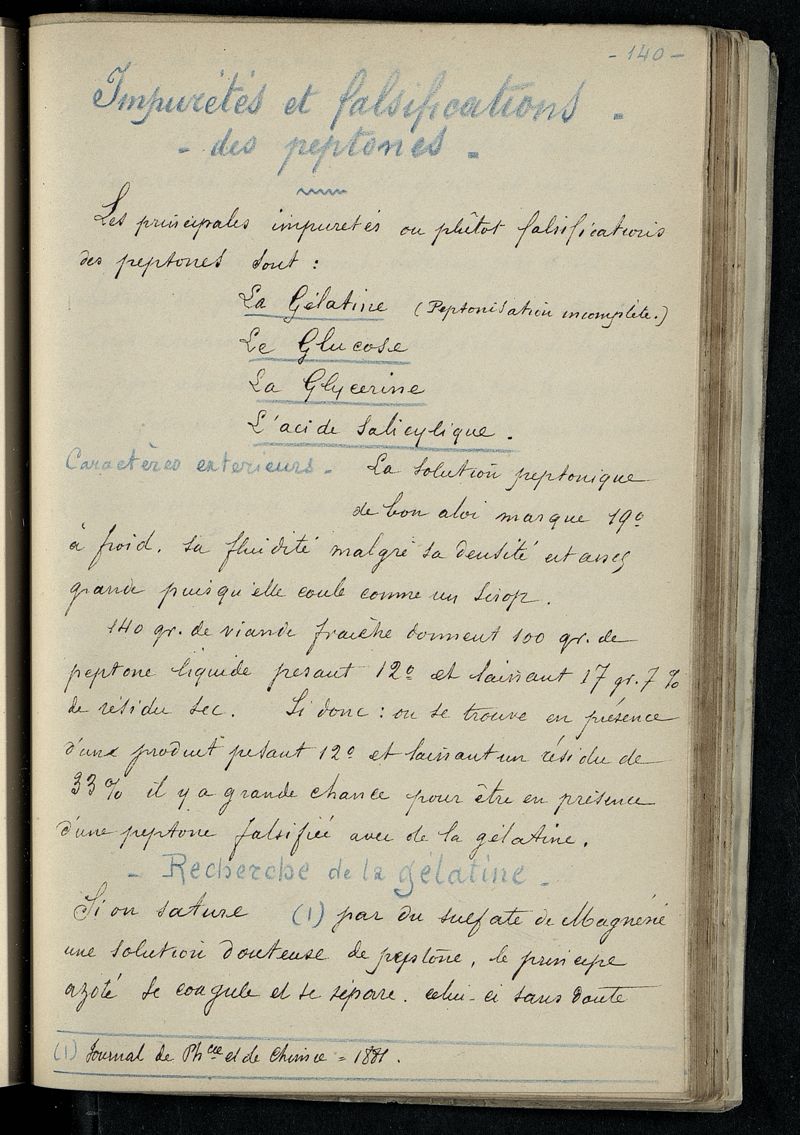 - 140 -
Impurétés et falsifications -
- des peptones -
Les principales impuretés ou plûtot falsifications
des peptones sont :
La Gélatine (Peptonisation incomplète.)
Le Glucose
La Glycerine
L'acide Salicylique.
Caractères exterieurs - La solution peptonique
de bon aloi marque 19º
à froid. Sa fluidité malgré sa densité est assez
grande puisqu'elle coule comme un Sirop.
140 gr. de viande fraîche donnent 100 gr. de
peptone liquide pesant 12º et laissant 17 gr. 7 %
de résidu sec. Si donc : on se trouve en présence
d'une produit pesant 12º et laissant un résidu de
33% il y a grande chance pour être en présence
d'une peptone falsifiée avec de la gélatine.
- Recherche de la gélatine -
Si on sature (1) par du sulfate de Magnésie
une solution douteuse de peptone, le principe
azoté se coagule et se sépare. Celui-ci sans doute
(1) Journal de Phcie et de Chimie = 1881.